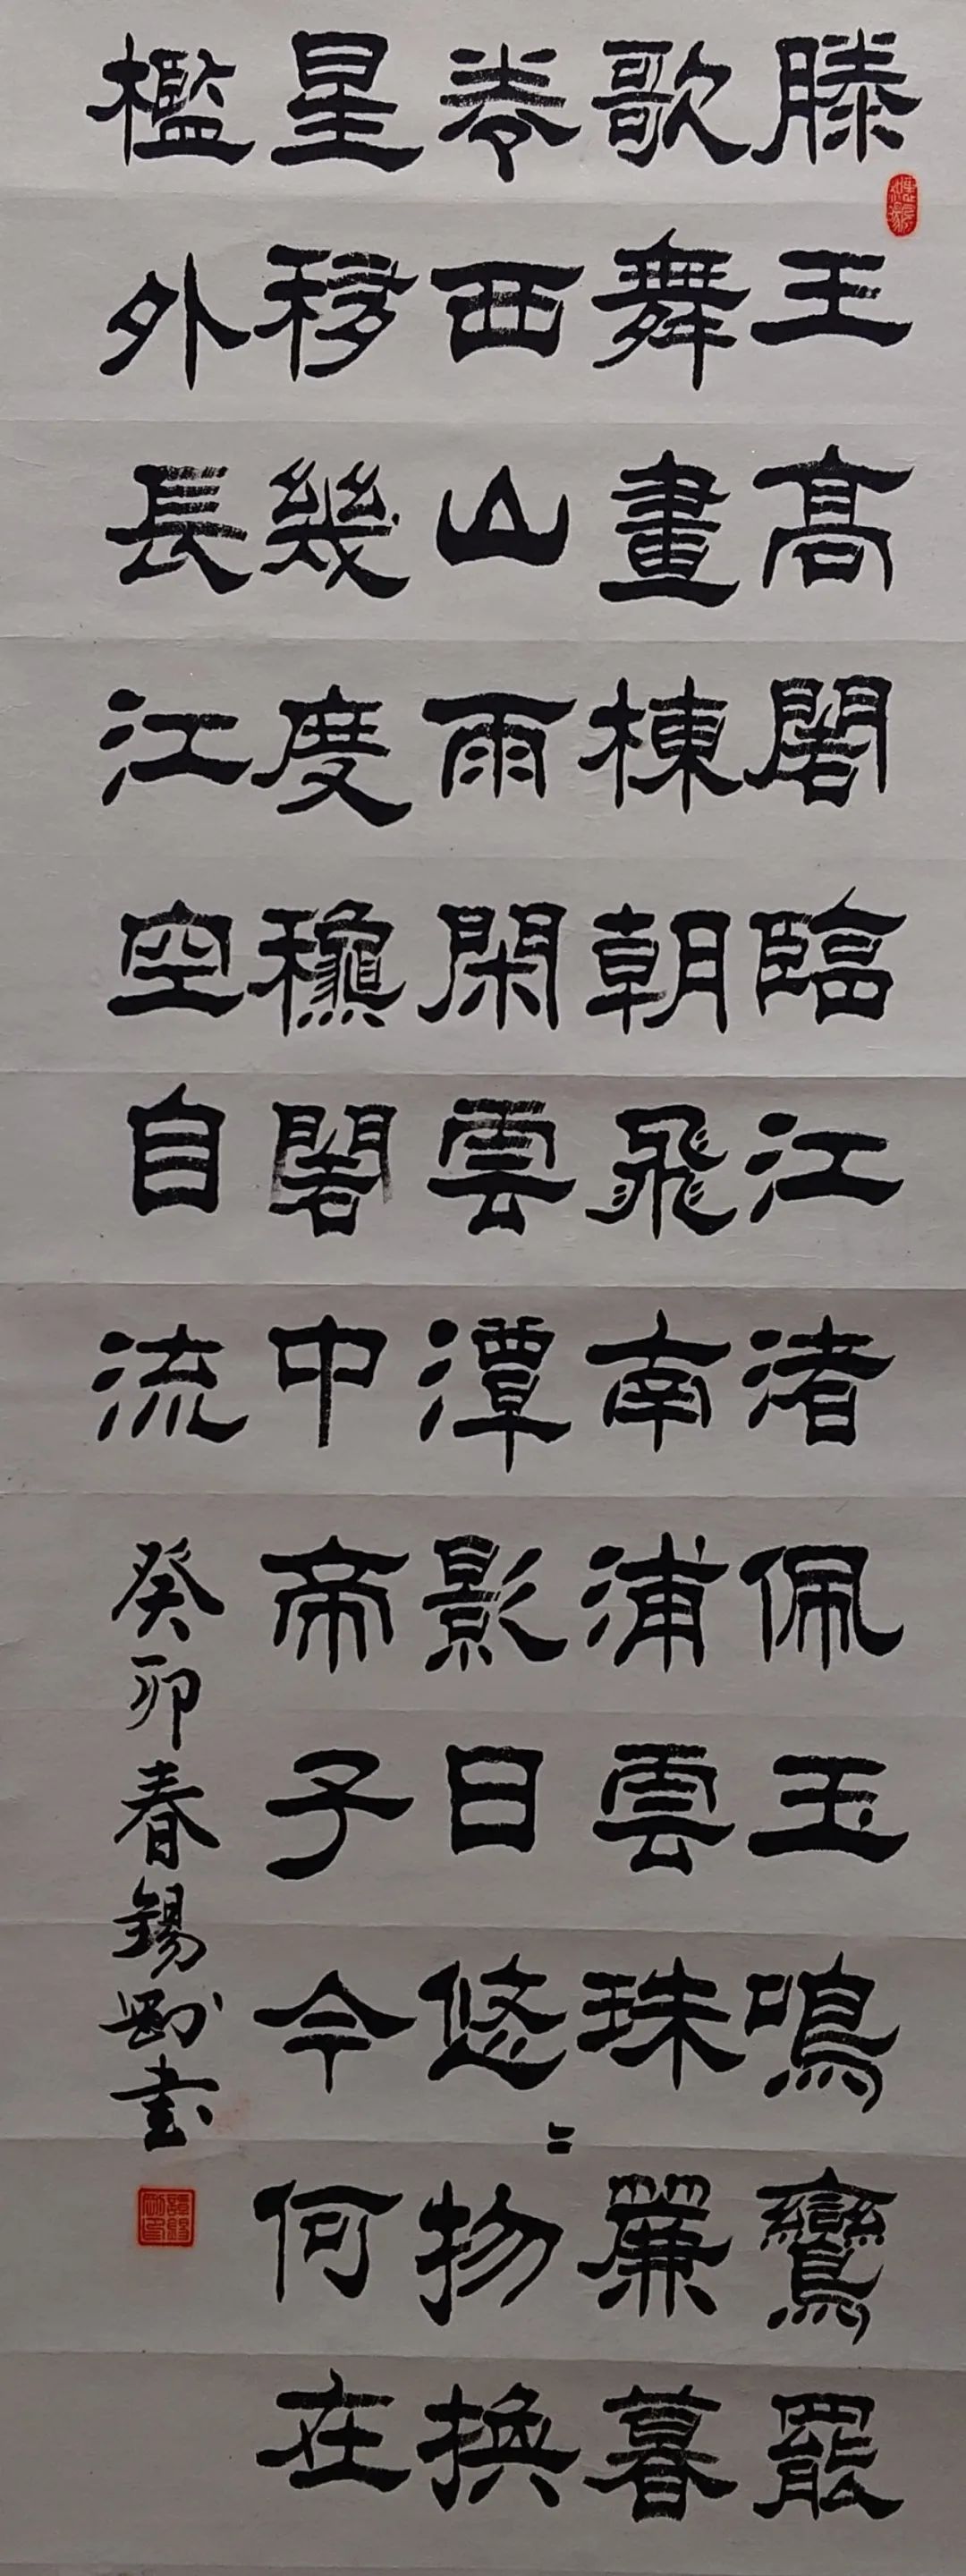 滕王高閣臨江渚佩玉鳴鸞罷
歌舞畫棟朝飛南浦雲珠簾暮
卷西山雨閑雲潭影日悠〻物換
星移幾度穐閣中帝子今何在
檻外長江空自流
癸卯春錫剛書